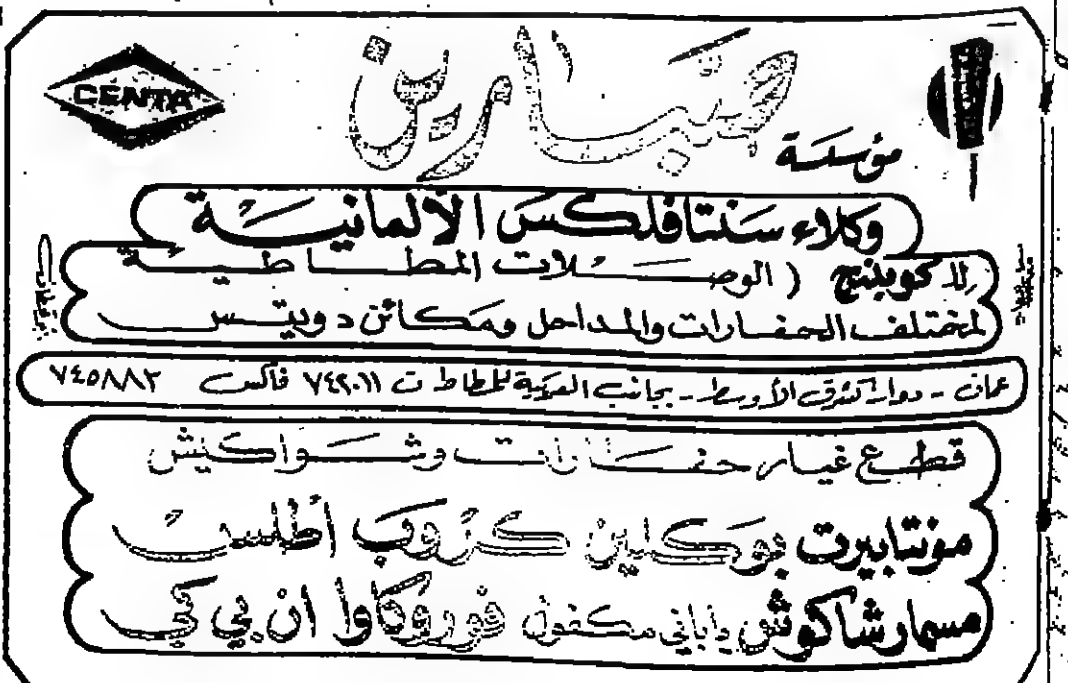 CENTA
جبارين
مؤسسة
وكلاء سنتافلكس الألمانية
للكوبلنج ( الوصلات المطاطية
لمختلف الحفارات والمداحل ومكائن دويتس
عمان - دوار الشرق الأوسط - بجانب العربية للمطاط ت ٧٤٢٠١١ فاكس ٧٤٥٨٨٢
قطع غيار حفارات وشواكيش
مونتابيرت بوكلين كروب أطلس
مسمار شاكوش ياباني مكفول فوروكاوا ان بي كي